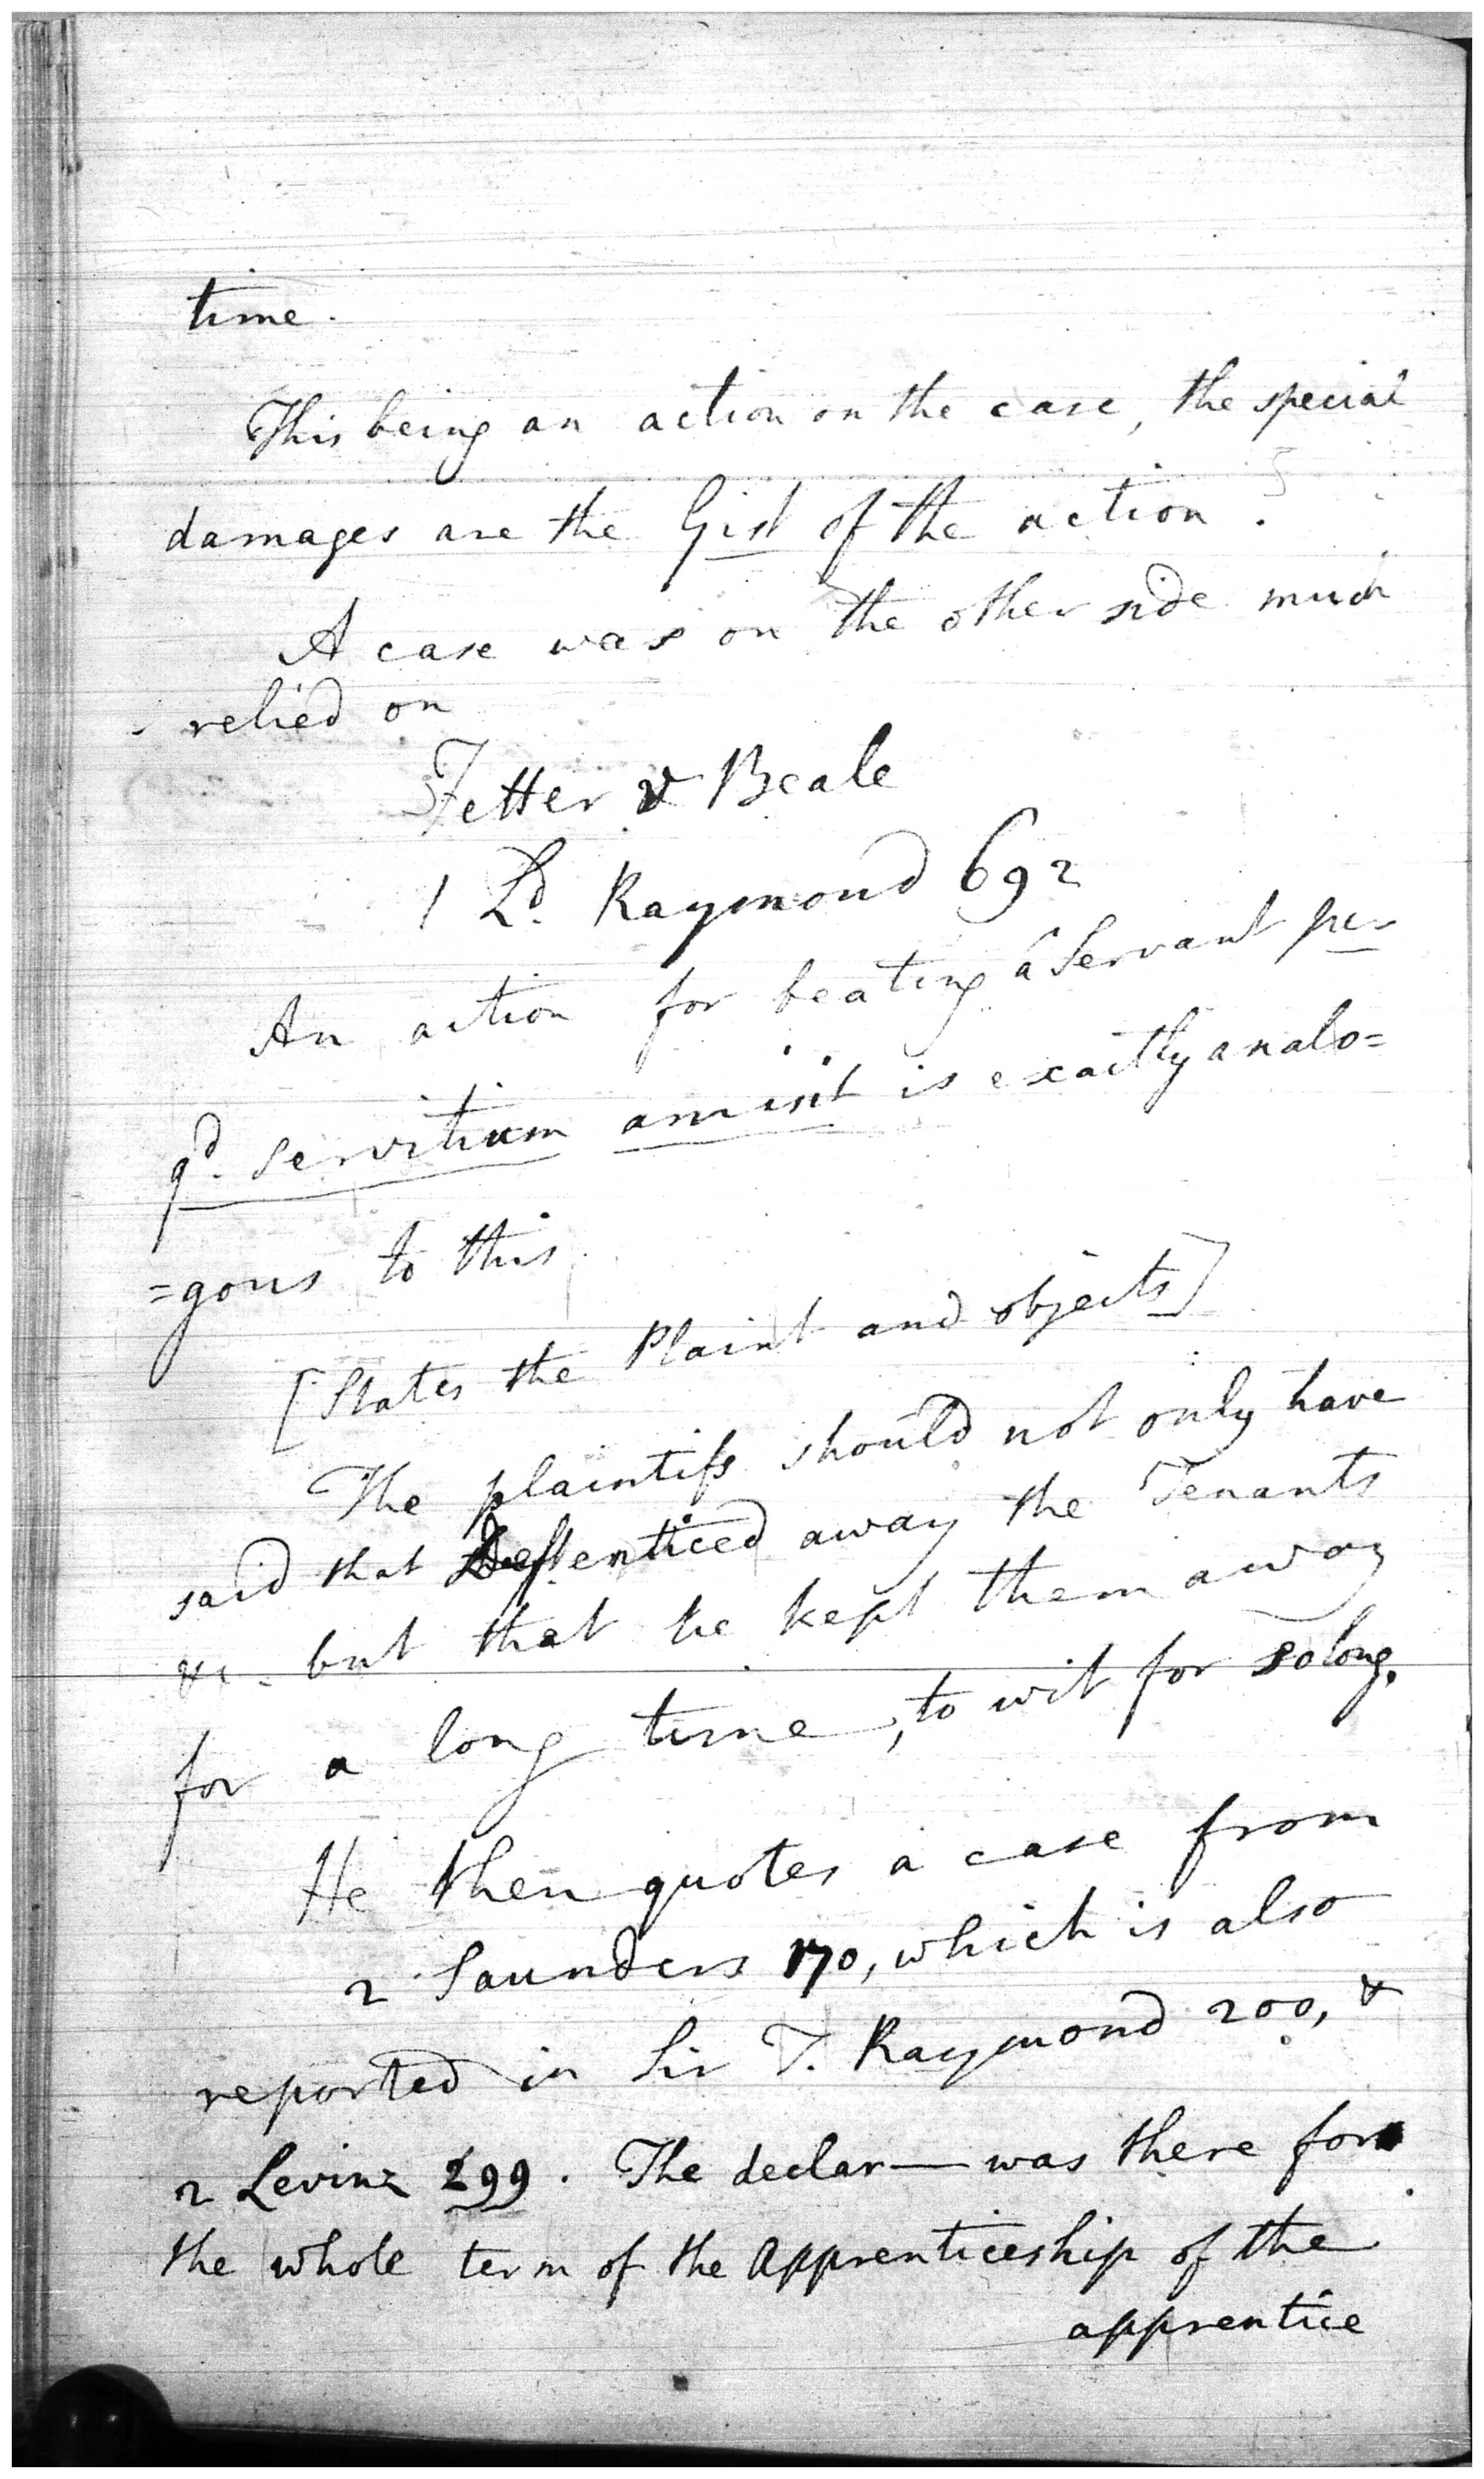 time.
This being an action on the case, the special
damages are the Gist of the action.
A case was on the other side much
relied on
Fetter v Beale
1 Ld. Raymond 692
An action for beating a Servant per
qd. servitium amisit is exactly analo=
=gous to this.
[States the Plaint and objects]
The plaintiffs should not only have
said that Deft enticed away the Tenants
&c. but that he kept them away
for a long time, to wit for so long.
He then quotes a case from
2 Saunders 170, which is also
reported in Sir T. Raymond 200, &
2 Levinz 299. The declar— was there for
the whole term of the Apprenticeship of the
apprentice